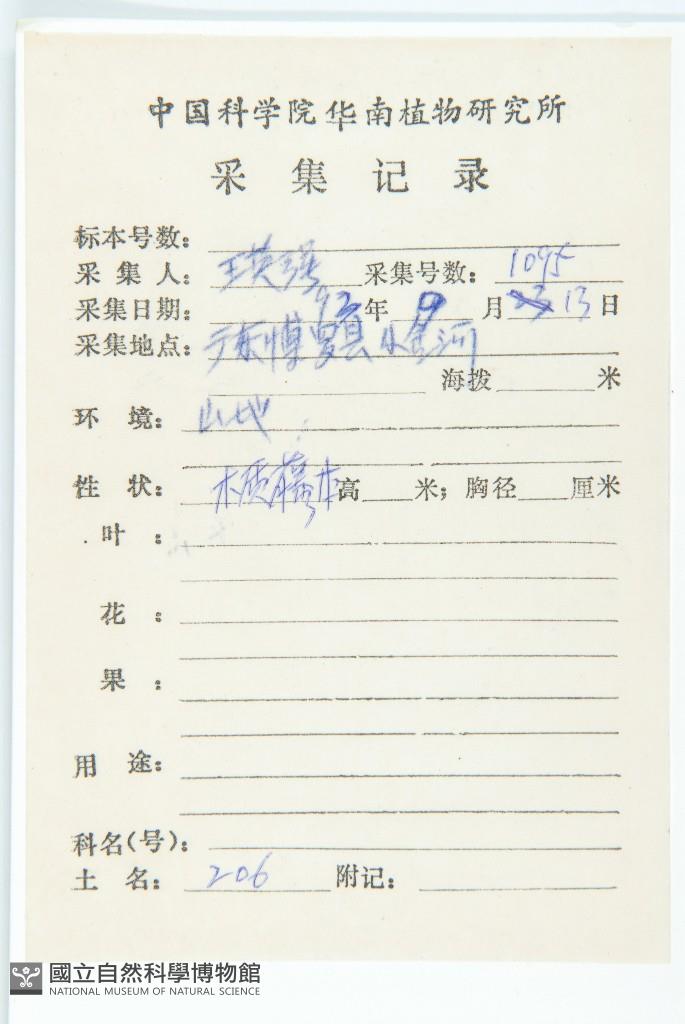 中国科学院华南植物研究所
采集记录
标本号数：
采集人：王英强 采集号数：1095
采集日期：93年9月13日
采集地点：广东博罗县小金河
海拨 米
环境：山地
性状：木质藤本高 米；胸径 厘米
叶：
花：
果：
用途：
科名(号)：
土名：206 附记：
國立自然科學博物館
NATIONAL MUSEUM OF NATURAL SCIENCE